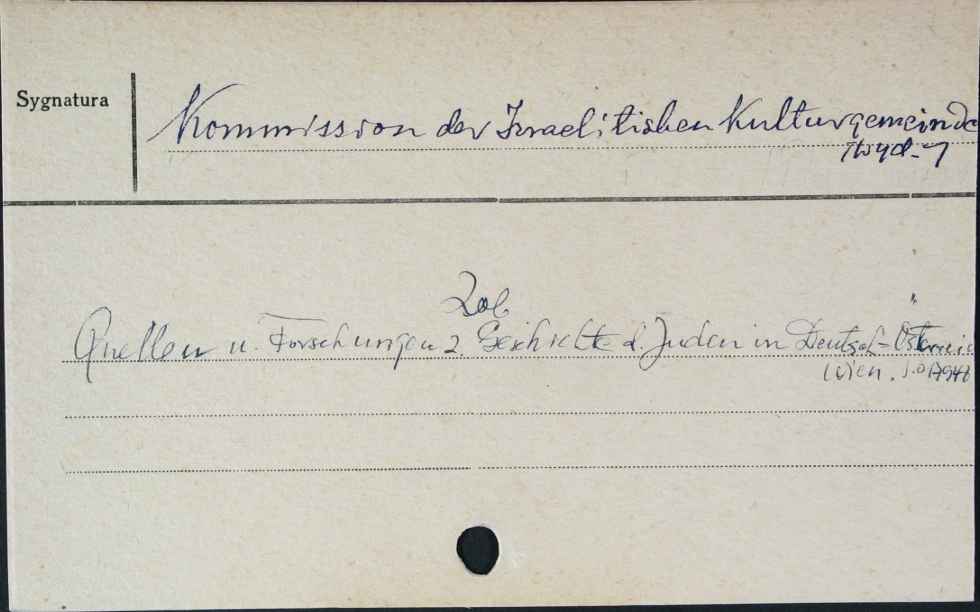 Sygnatura
Kommission der Israelitischen Kulturgemeinde
/wyd./
Zob
Quellen u. Forschungen z. Geschichte d. Juden in Deutsch-Österreic
Wien.